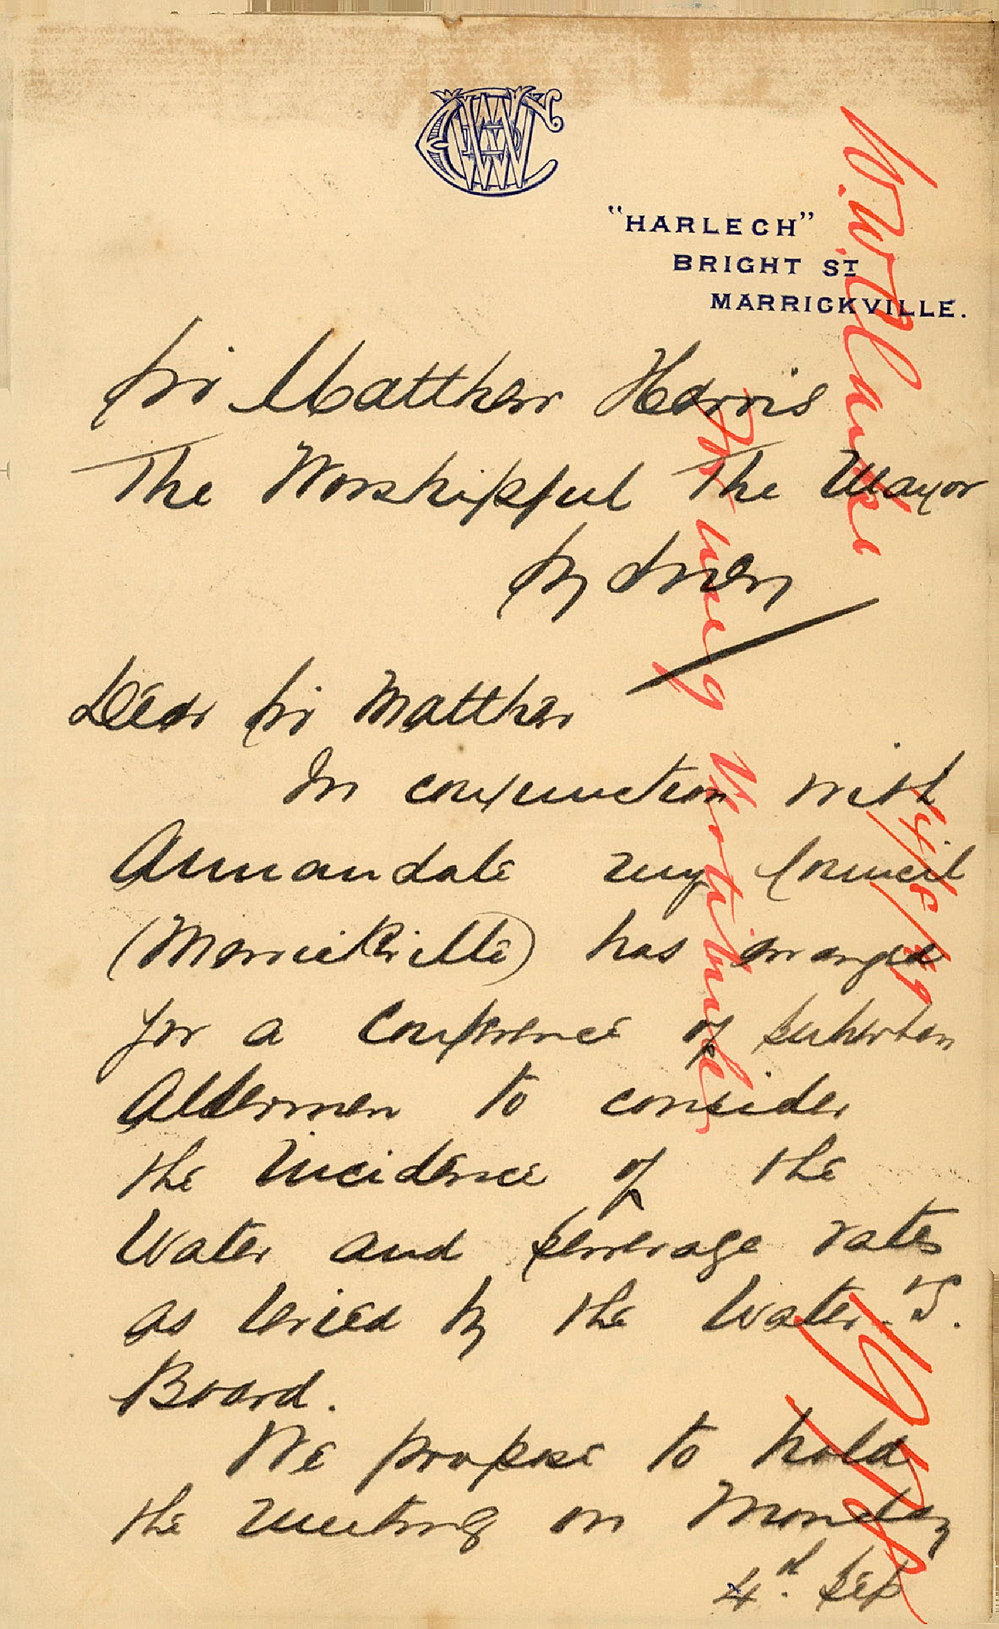 "HARLECH"
BRIGHT ST
MARRICKVILLE.
Sir Matthew Harris
The Worshipful The Mayor
Sydney
Dear Sir Matthew
In conjunction with
Annandale my Council
(Marrickville) has arranged
for a Conference of Suburban
Aldermen to consider
the incidence of the
Water and Sewerage rates
as levied by the Water & S.
Board.
We propose to hold
the meeting on Monday
4th. Sep
W. W. Clarke